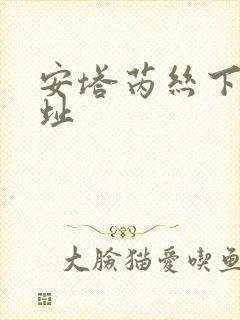 安塔芮絲下
址
大臉猫愛喫鱼